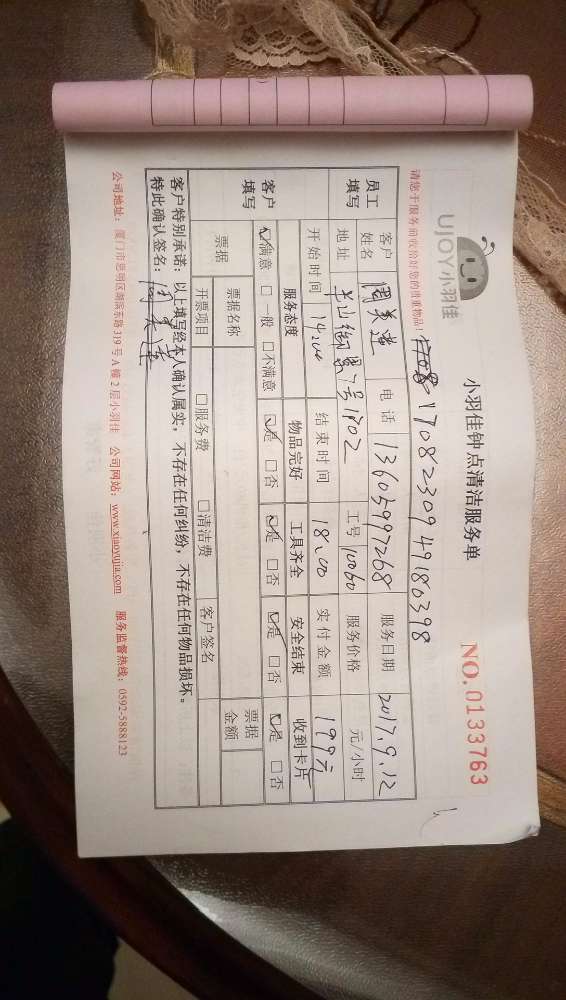 UJOY小羽佳
小羽佳钟点清洁服务单
NO.0133763
请您于服务前收拾好您的贵重物品!
1708230949180398
员工填写 客户姓名 周美莲 电话 13605997268 服务日期 2017.9.12
地址 7号1702 工号 10060 服务价格 元/小时
开始时间 14:00 结束时间 18:00 实付金额 199元
客户填写 服务态度 物品完好 工具齐全 安全结束 收到卡片
☑满意 □一般 □不满意 ☑是 □否 ☑是 □否 ☑是 □否 ☑是 □否
票据 票据名称 票据金额
开票项目 □服务费 □清洁费 客户签名
客户特别承诺：以上填写经本人确认属实，不存在任何纠纷，不存在任何物品损坏。
特此确认签名：周美莲
公司地址：厦门市思明区湖滨东路319号A幢2层小羽佳 公司网站：www.xiaoyujia.com 服务监督热线：0592-5888123